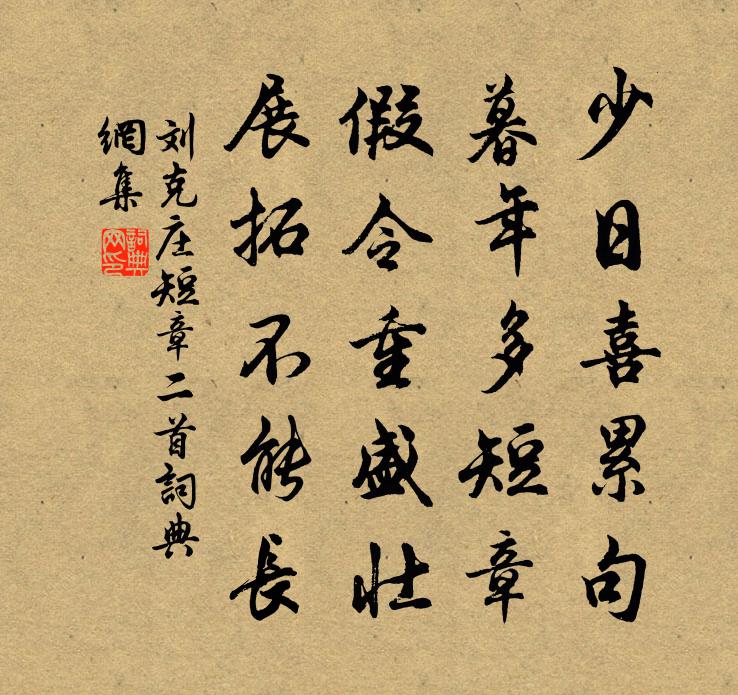 少日喜累句
暮年多短章
假令重盛壮
展拓不能長
刘克庄短章二首詞典
網集
詞典
网印